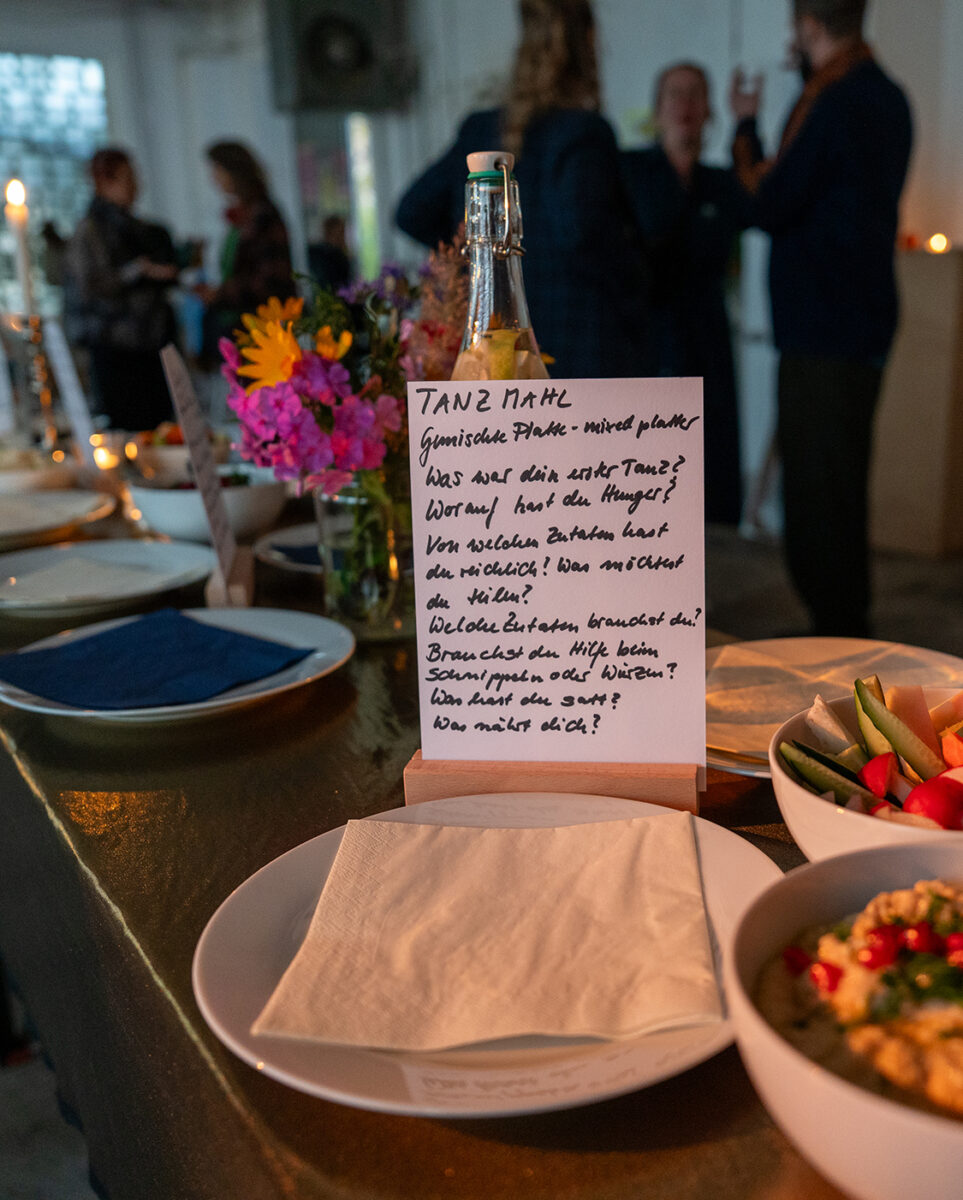 TANZ MAHL
Gemischte Platte - mixed platter
Was war dein erster Tanz?
Worauf hast du Hunger?
Von welchen Zutaten hast
du reichlich? Was möchtest
du teilen?
Welche Zutaten brauchst du?
Brauchst du Hilfe beim
Schnippeln oder Würzen?
Was hast du satt?
Was nährt dich?